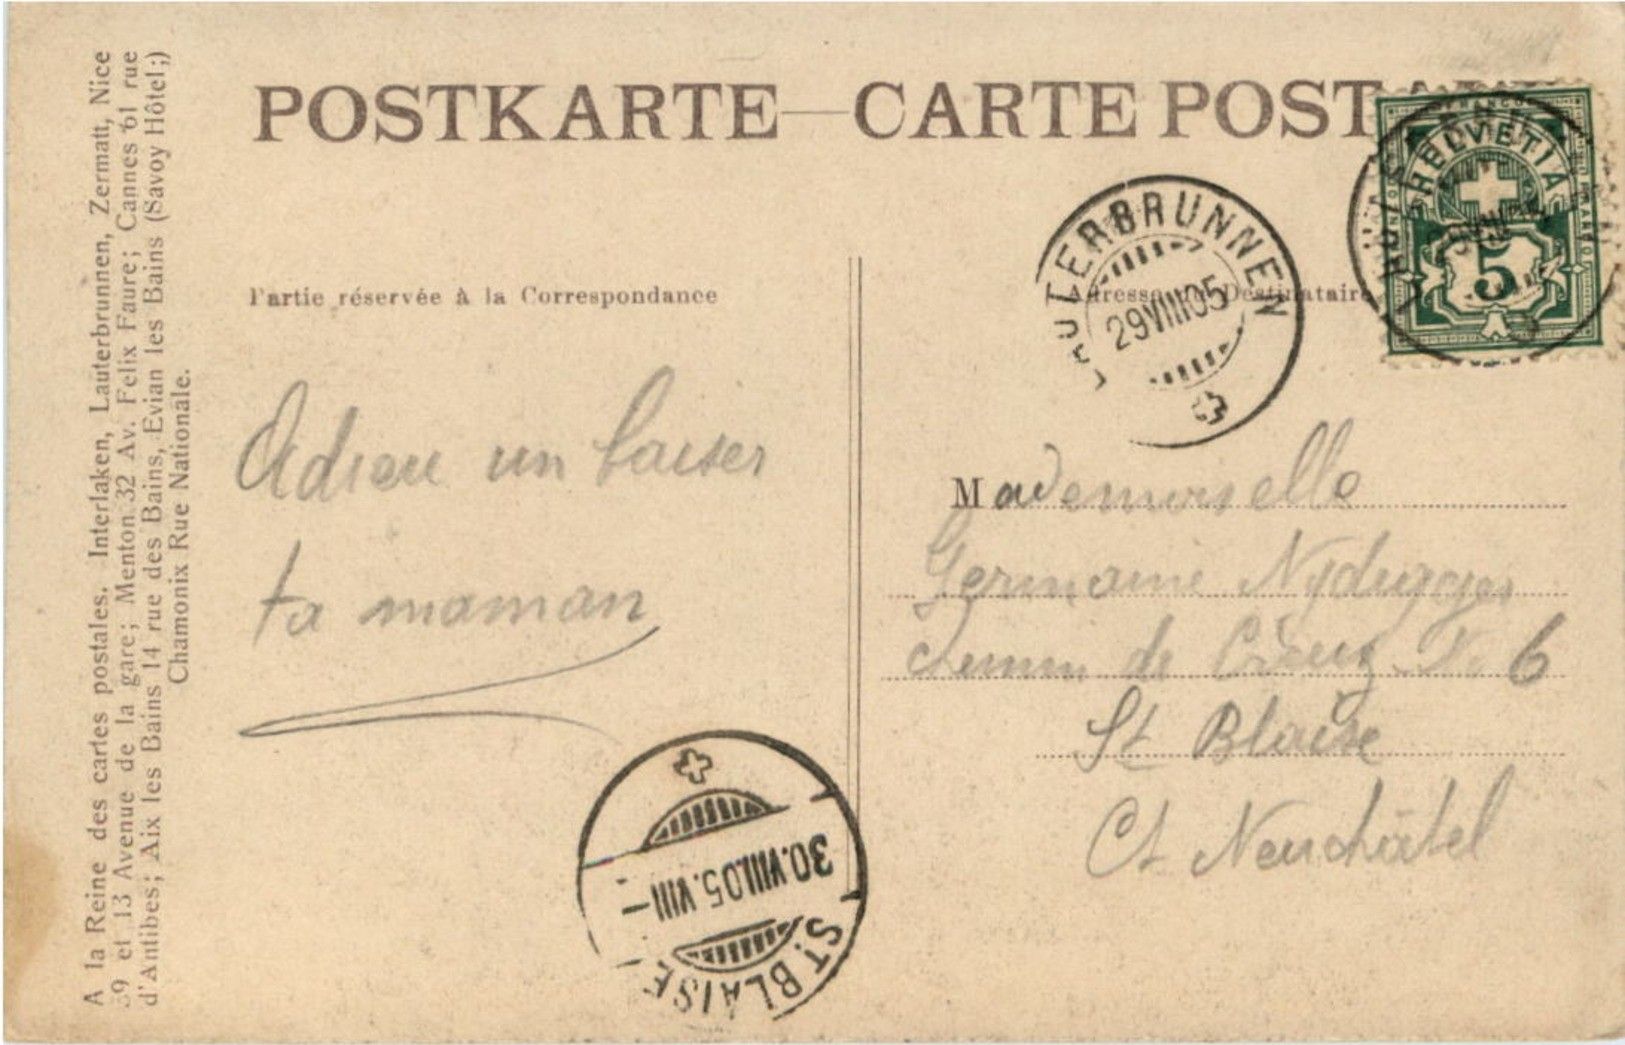 POSTKARTE — CARTE POST
A la Reine des cartes postales. Interlaken, Lauterbrunnen, Zermatt, Nice
59 et 13 Avenue de la gare; Menton 32 Av. Felix Faure; Cannes 61 rue
d'Antibes; Aix les Bains 14 rue des Bains, Evian les Bains (Savoy Hôtel;)
Chamonix Rue Nationale.
Partie réservée à la Correspondance
Adresse du Destinataire
LAUTERBRUNNEN
29 VIII 05
FRANCO
HELVETIA
5
Adieu un baiser
ta maman
Mademoiselle
Germaine Nydegger
Chemin de Creuze No 6
St Blaise
Ct Neuchâtel
30.VIII.05.VIII
ST. BLAISE